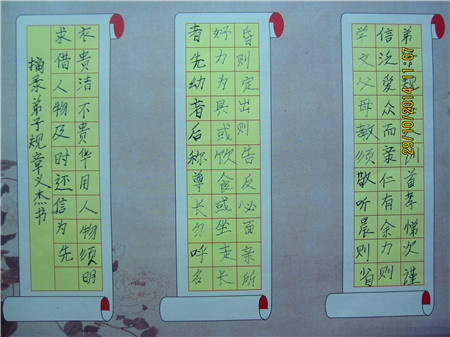 弟规人训首孝悌次谨
信泛爱众而亲仁有余力则
学文父母教须敬听晨则省
昏则定出则告反必面亲所
好力为具或饮食或坐走长
者先幼者后称尊长勿呼名
衣贵洁不贵华用人物须明
求借人物及时还信为先
摘录弟子规章义杰书
29/10/2014